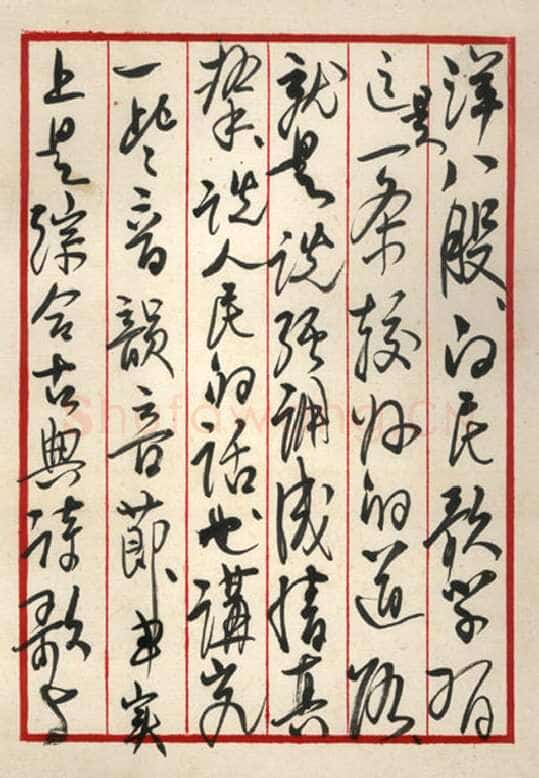 洋八股、向民歌学習
这是一条较好的道路、
就是说强调感情真
挚、说人民的话也講究
一些音韻音節、事实
上是综合古典诗歌与
ShufaWang.CN